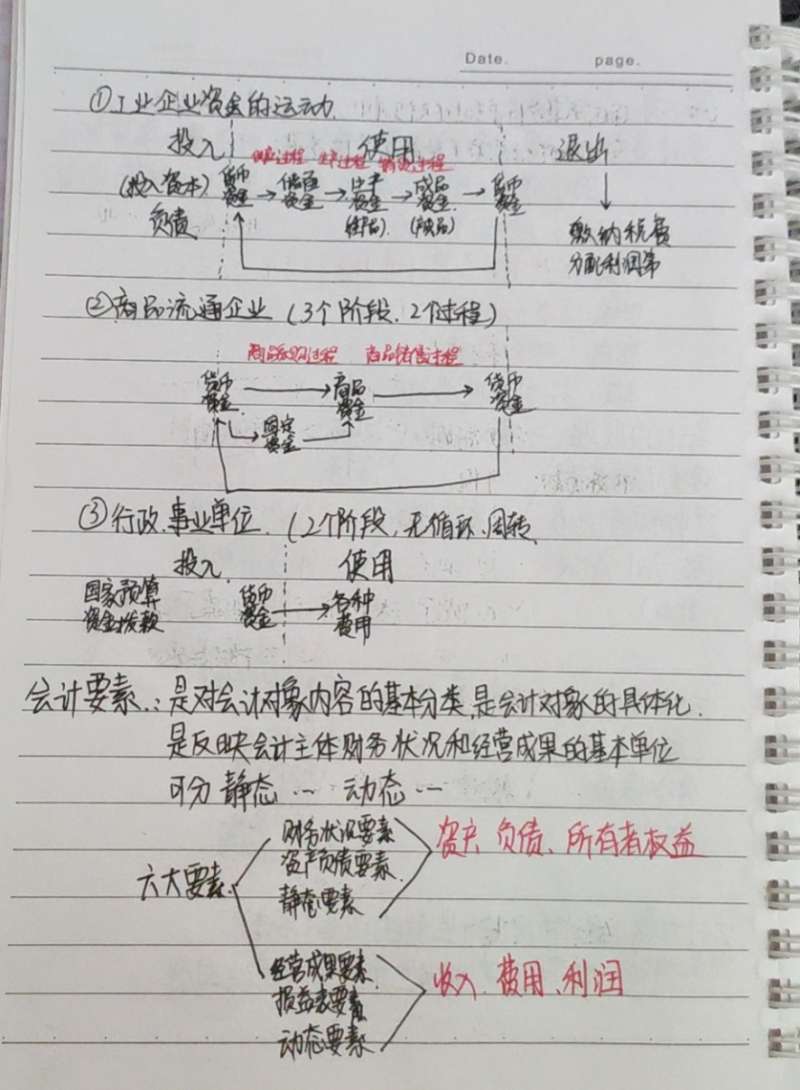 Date. page.
①工业企业资金的运动
投入 使用 退出
供应过程 生产过程 销售过程
(投入资本) 货币资金 → 储备资金 → 生产资金 → 成品资金 → 货币资金
负债 (产成品) 缴纳税费
分配利润等
②商品流通企业 (3个阶段、2个过程)
商品采购过程 商品销售过程
货币资金 → 商品资金 → 货币资金
固定资金
③行政、事业单位 (2个阶段,无循环、周转
投入 使用
国家预算 货币资金 → 各种费用
资金拨款
会计要素:是对会计对象内容的基本分类,是会计对象的具体化.
是反映会计主体财务状况和经营成果的基本单位
可分 静态… 动态…
财务状况要素
资产负债要素
静态要素
资产、负债、所有者权益
六大要素
经营成果要素
损益表要素
动态要素
收入、费用、利润